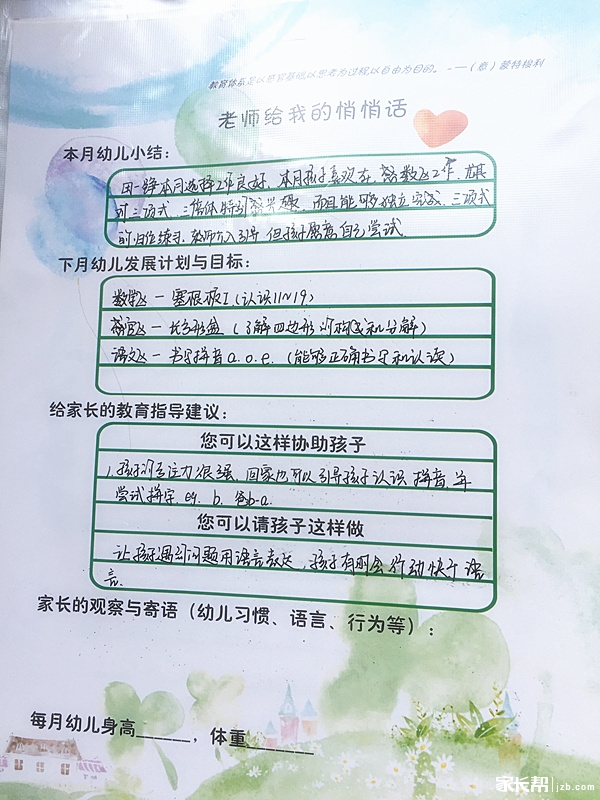 教育体系是以感官基础,以思考为过程,以自由为目的。-—(意)蒙特梭利
老师给我的悄悄话
本月幼儿小结:
本月选择工作良好,本月孩子喜欢在感数区工作,尤其
对三项式、二倍体特别感兴趣,而且能够独立完成,三项式
的归位练习,教师介入引导,但孩子愿意自己尝试.
下月幼儿发展计划与目标:
数学区—塞根板I(认识11~19)
感官区—长方形盒(了解四边形的构成和分解)
语文区—书写拼音a.o.e.(能够正确书写和认读)
给家长的教育指导建议:
您可以这样协助孩子
1.孩子的专注力很强,回家也可以引导孩子认识拼音,并
尝试拼字. eg. b. 爸b-a.
您可以请孩子这样做
让孩子遇到问题用语言表达,孩子有时会行动快于语
言.
家长的观察与寄语(幼儿习惯、语言、行为等):
每月幼儿身高______,体重______
家长帮|jzb.com